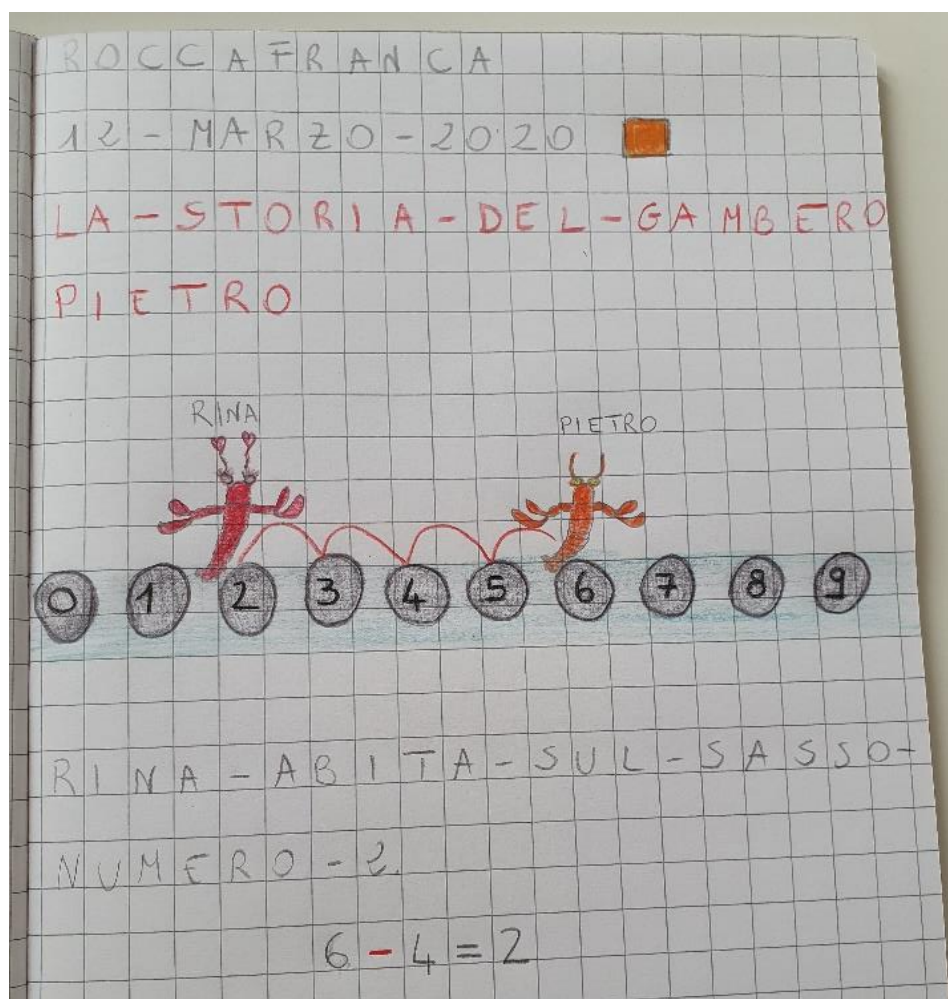 ROCCAFRANCA
12-MARZO-2020
LA-STORIA-DEL-GAMBERO
PIETRO
RINA
PIETRO
0 1 2 3 4 5 6 7 8 9
RINA-ABITA-SUL-SASSO-
NUMERO-2.
6-4=2